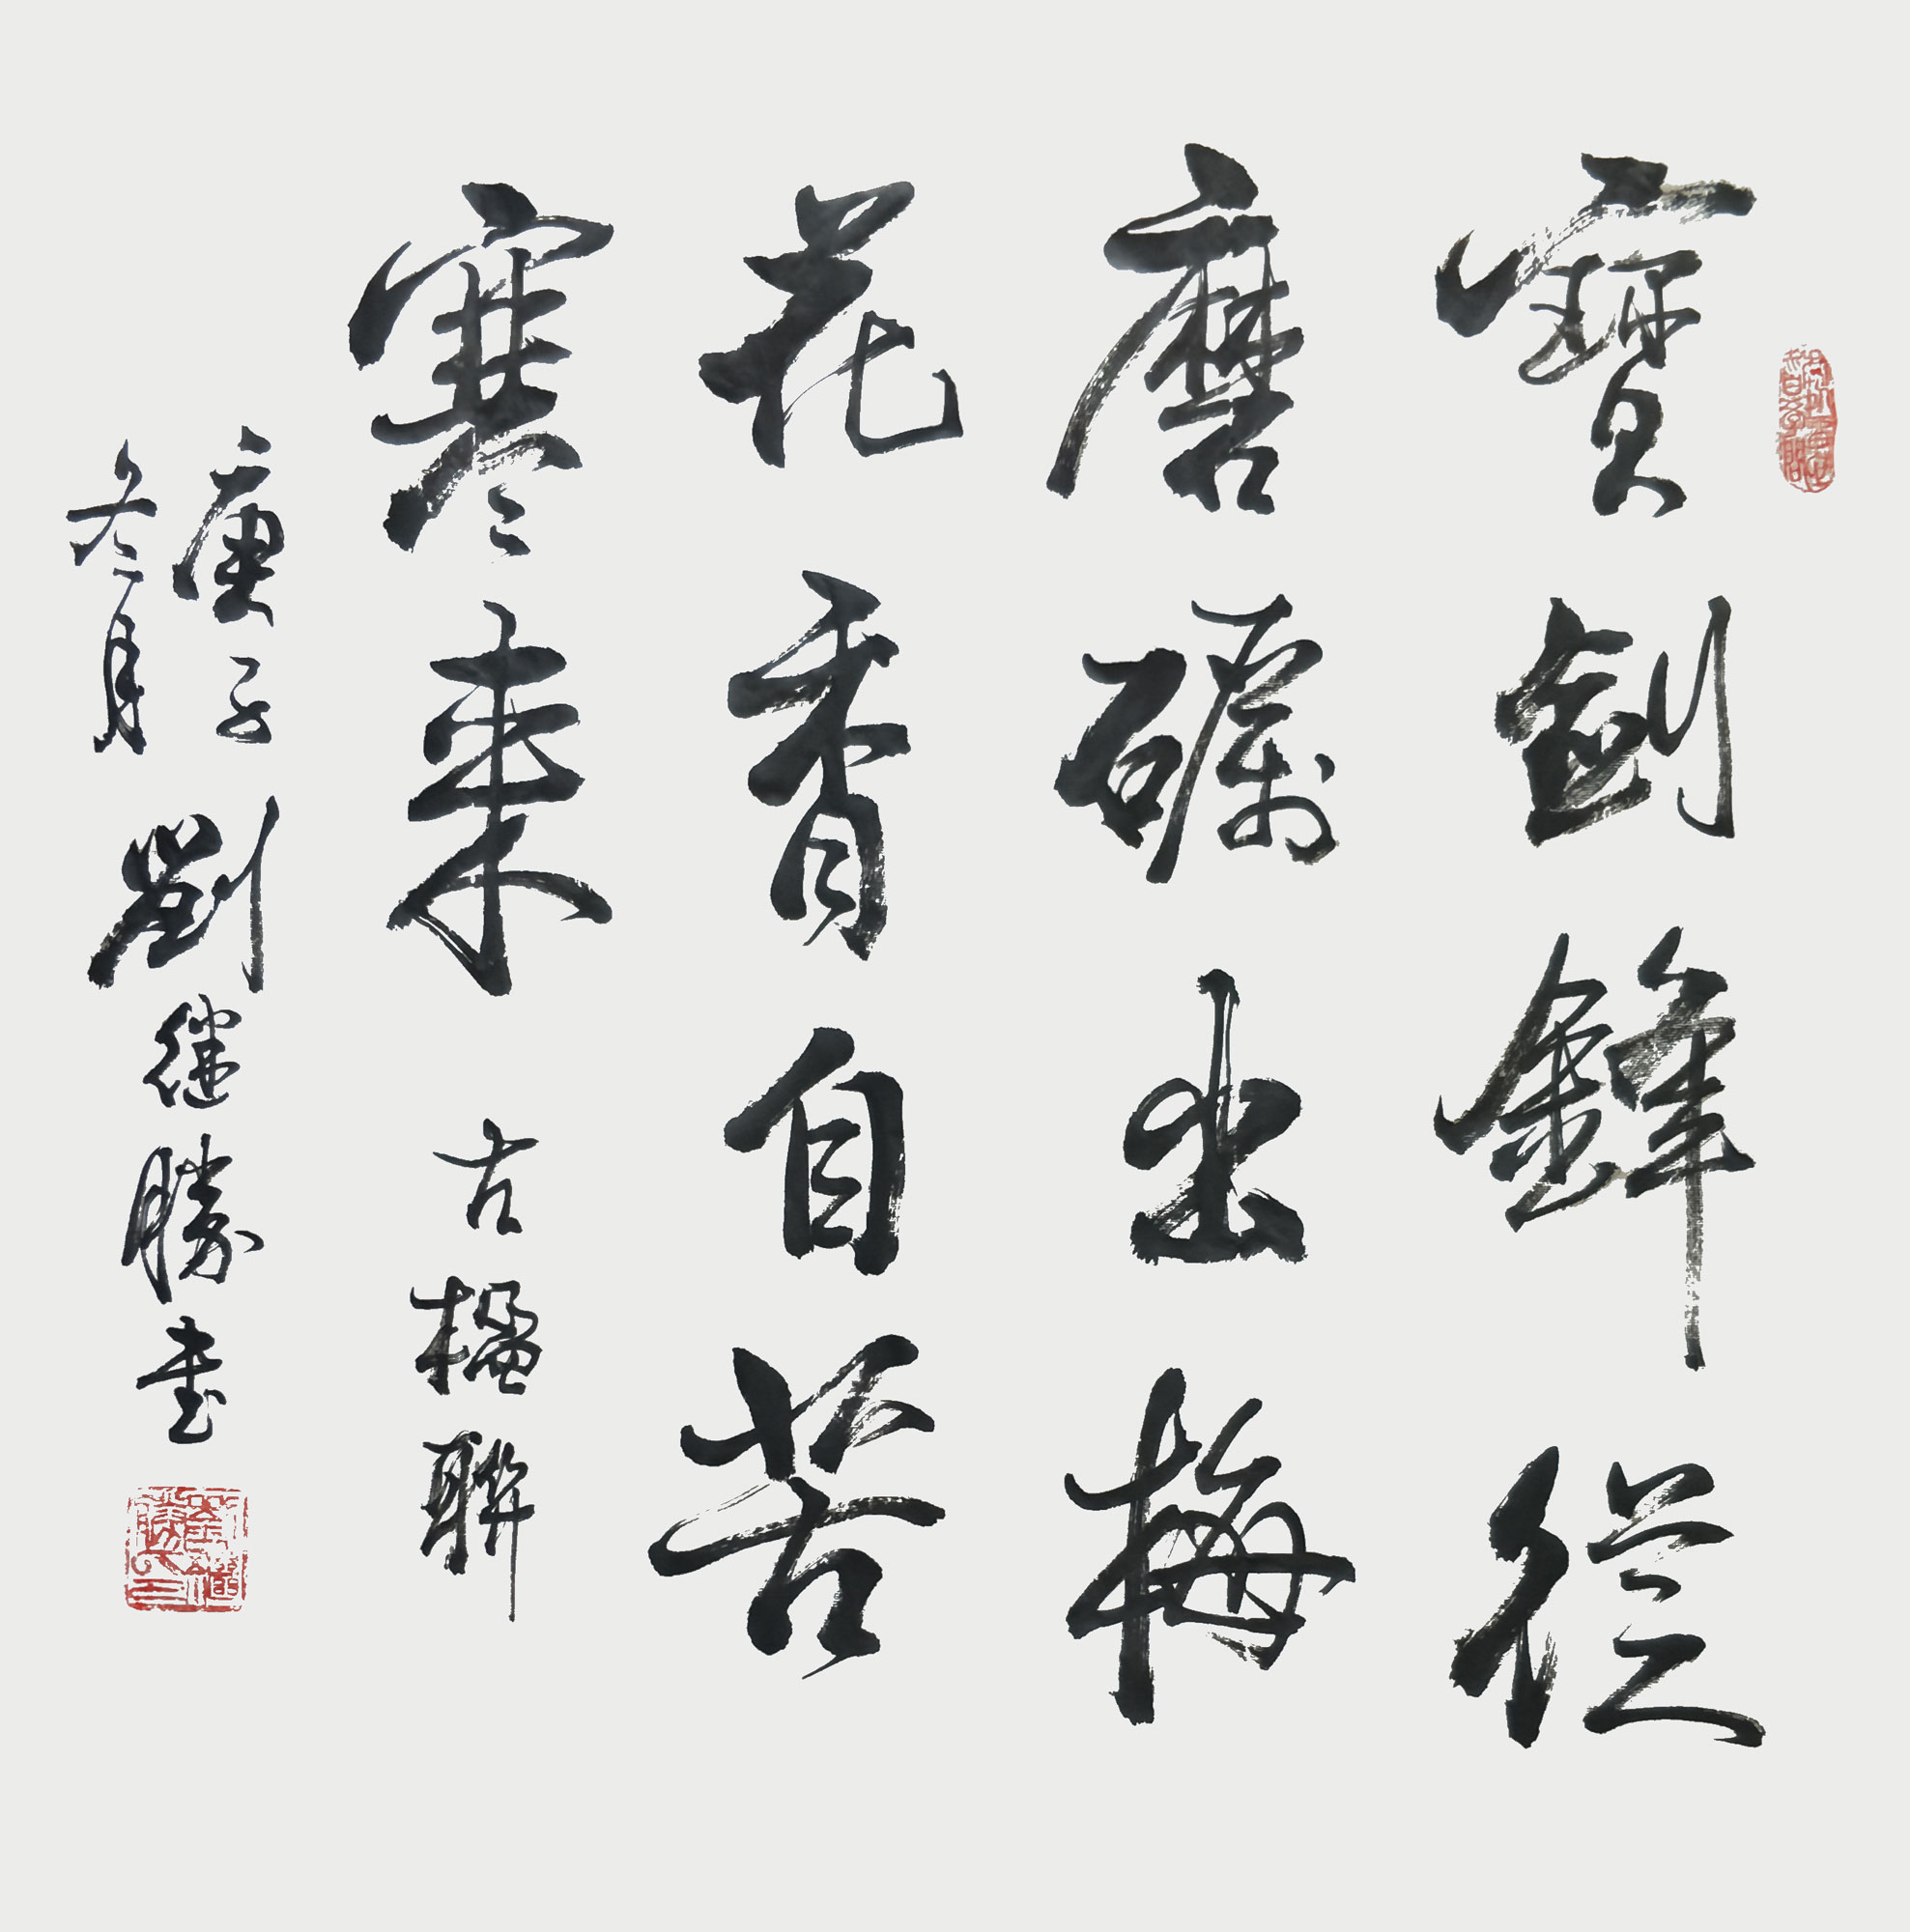 寶劍鋒從
磨礪出梅
花香自苦
寒来 古楹聯
庚子
冬月
劉继勝書